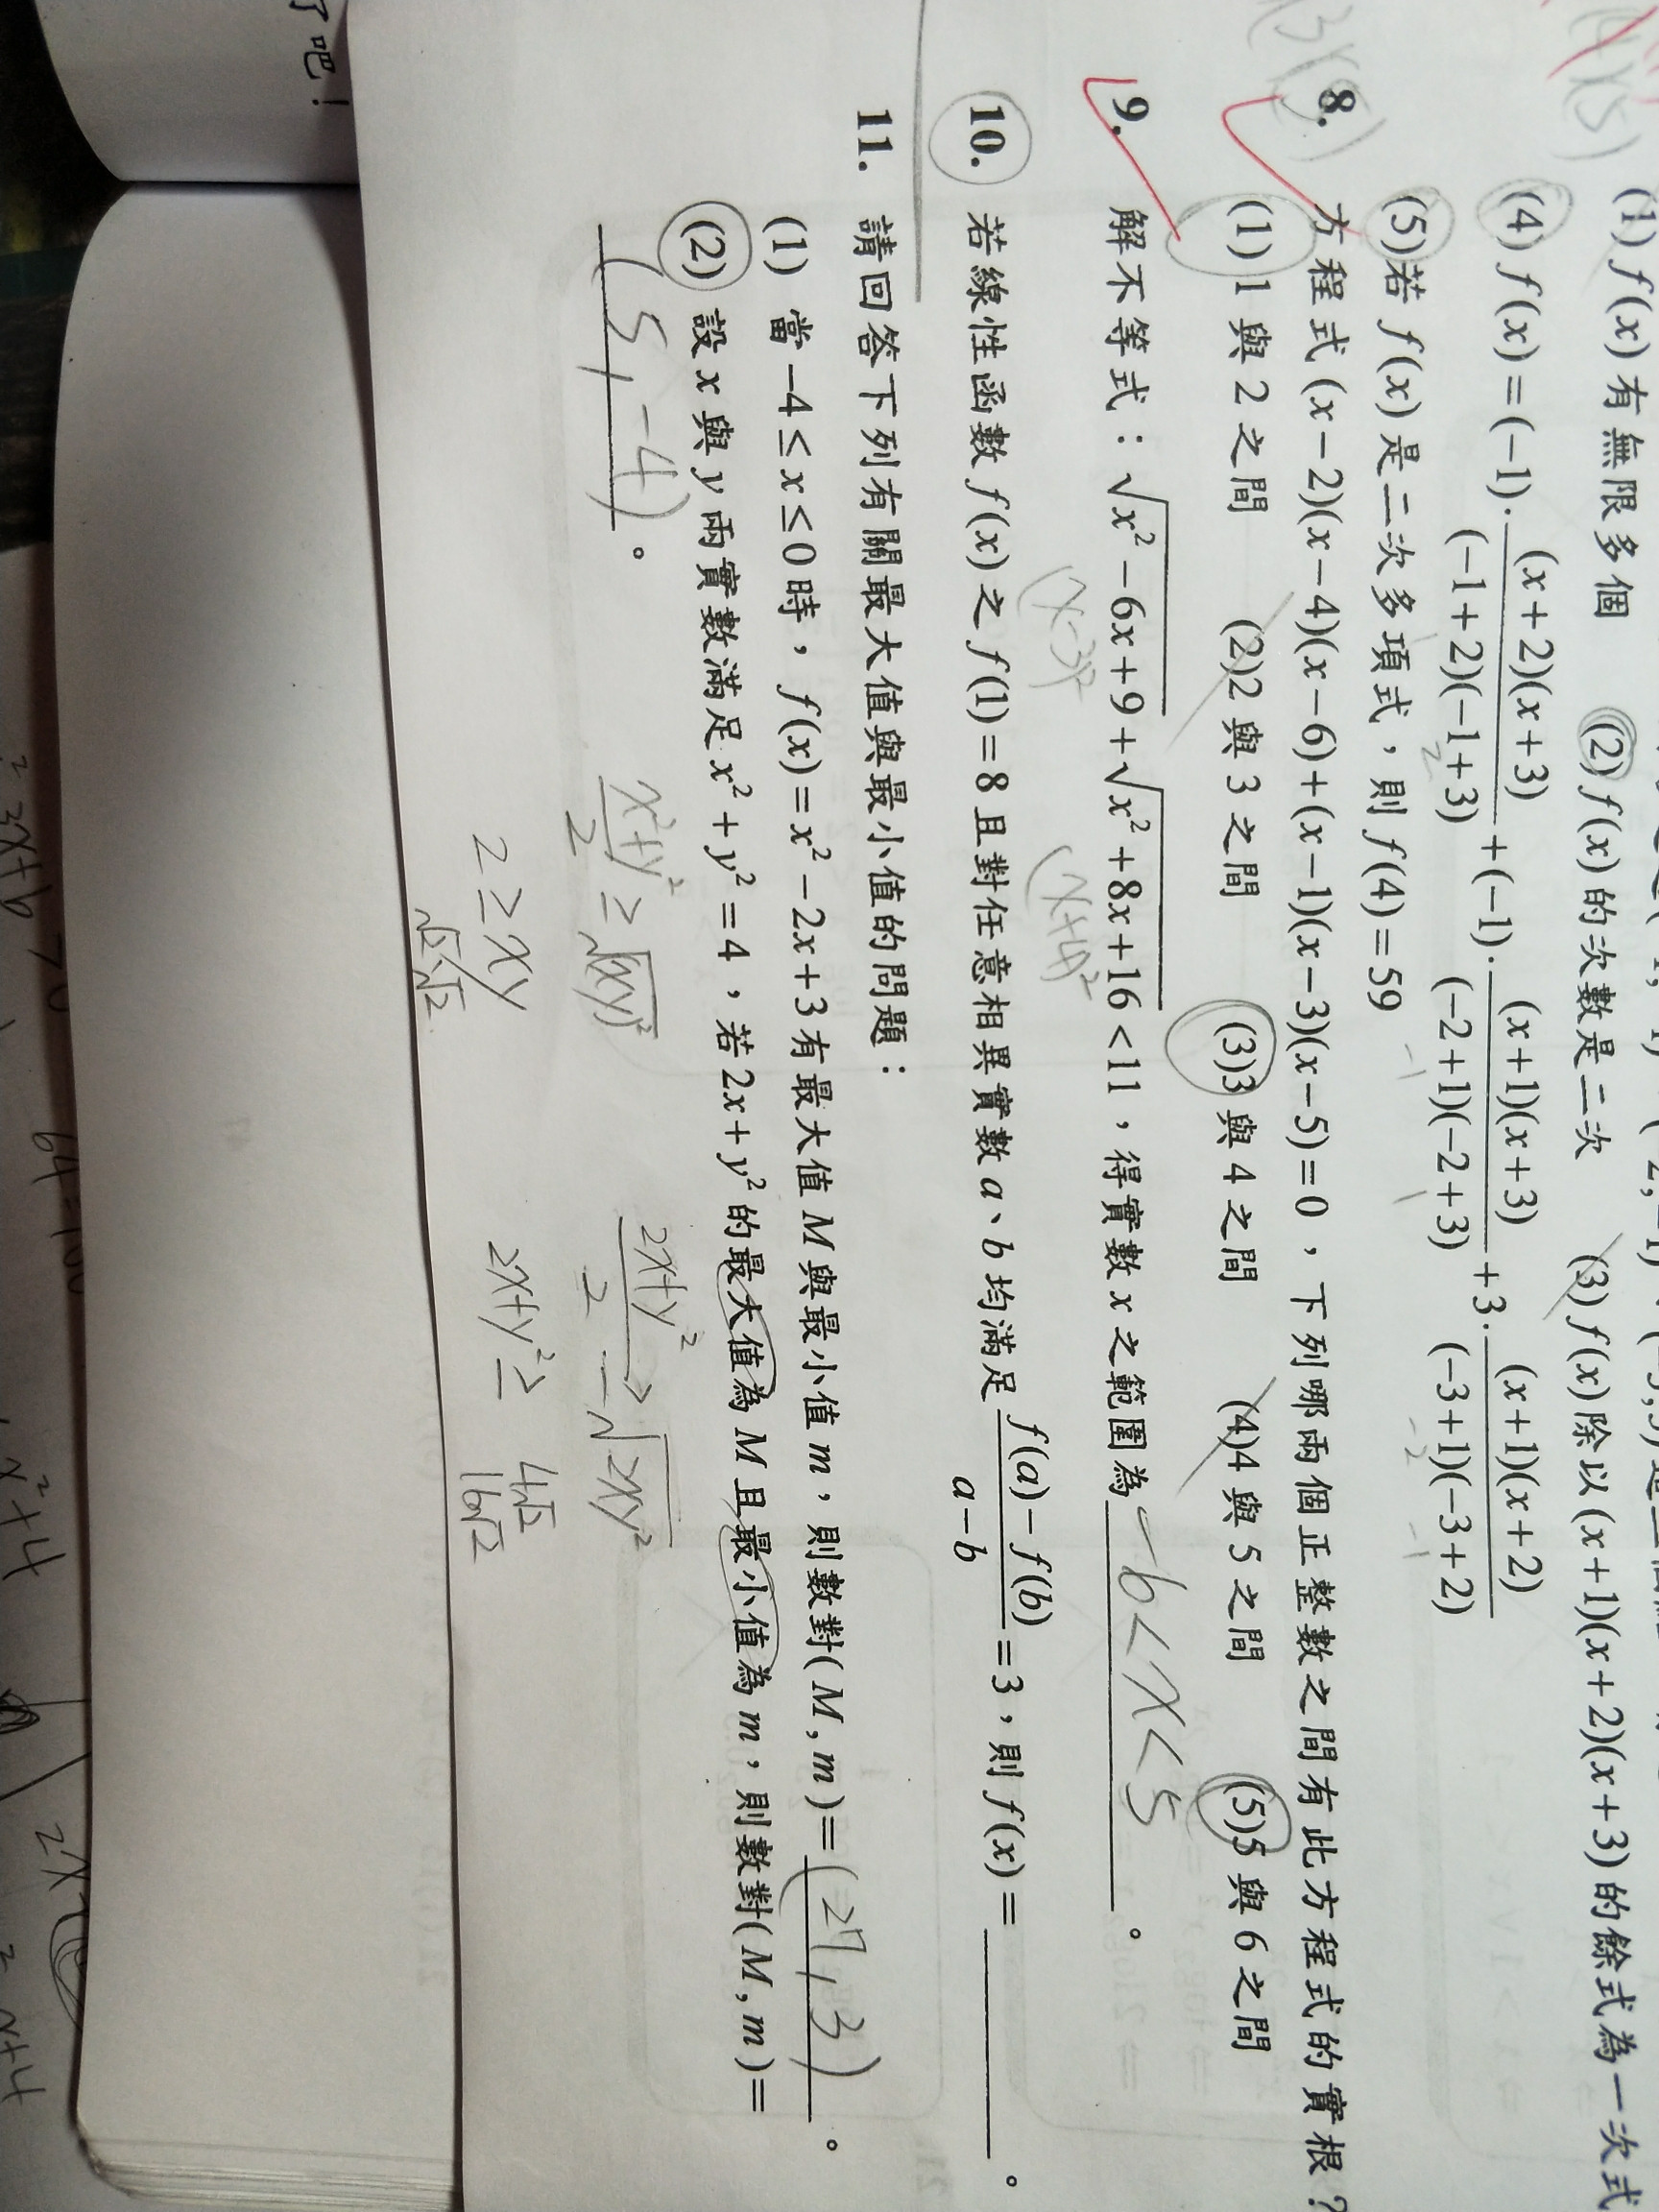 (1) f(x)有無限多個 (2) f(x)的次數是二次 (3) f(x)除以(x+1)(x+2)(x+3)的餘式為一次式
(4) f(x)=(-1)·\frac{(x+2)(x+3)}{(-1+2)(-1+3)}+(-1)·\frac{(x+1)(x+3)}{(-2+1)(-2+3)}+3·\frac{(x+1)(x+2)}{(-3+1)(-3+2)}
(5)若f(x)是二次多項式,則f(4)=59
8. 方程式(x-2)(x-4)(x-6)+(x-1)(x-3)(x-5)=0,下列哪兩個正整數之間有此方程式的實根?
(1)1與2之間 (2)2與3之間 (3)3與4之間 (4)4與5之間 (5)5與6之間
9. 解不等式:√(x²-6x+9)+√(x²+8x+16)<11,得實數x之範圍為 -6<x<5 。
(x-3)² (x+4)²
10. 若線性函數f(x)之f(1)=8且對任意相異實數a、b均滿足\frac{f(a)-f(b)}{a-b}=3,則f(x)=______。
11. 請回答下列有關最大值與最小值的問題:
(1) 當-4≤x≤0時,f(x)=x²-2x+3有最大值M與最小值m,則數對(M,m)=(27,3)。
(2) 設x與y兩實數滿足x²+y²=4,若2x+y²的最大值為M且最小值為m,則數對(M,m)=
(5,-4)。
\frac{x²+y²}{2}≥√(xy)² \frac{2x+y²}{2}≥√2xy²
2≥xy 2x+y²≥ 4√2
√2 √2 16√2
了吧!